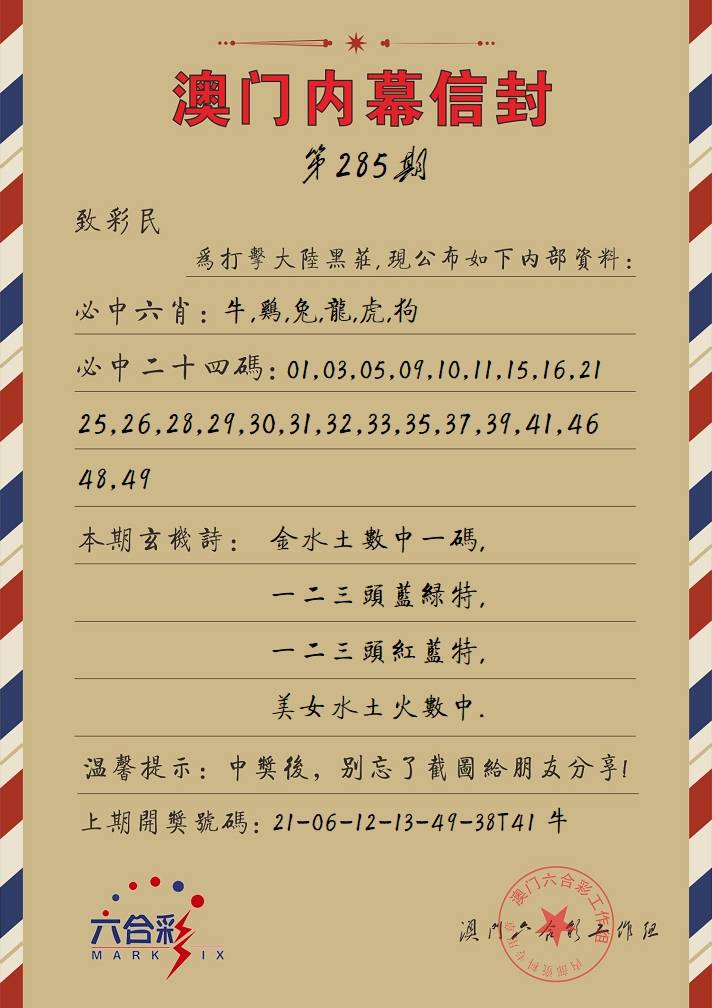 澳门内幕信封
第285期
致彩民
爲打擊大陸黑莊,現公布如下内部資料:
必中六肖: 牛,鷄,兔,龍,虎,狗
必中二十四碼: 01,03,05,09,10,11,15,16,21
25,26,28,29,30,31,32,33,35,37,39,41,46
48,49
本期玄機詩: 金水土數中一碼,
一二三頭藍綠特,
一二三頭紅藍特,
美女水土火數中.
温馨提示: 中獎後, 别忘了截圖給朋友分享!
上期開獎號碼: 21-06-12-13-49-38T41 牛
六合彩
MARK SIX
澳门六合彩工作组
澳门六合彩工作组
内部资料专用章